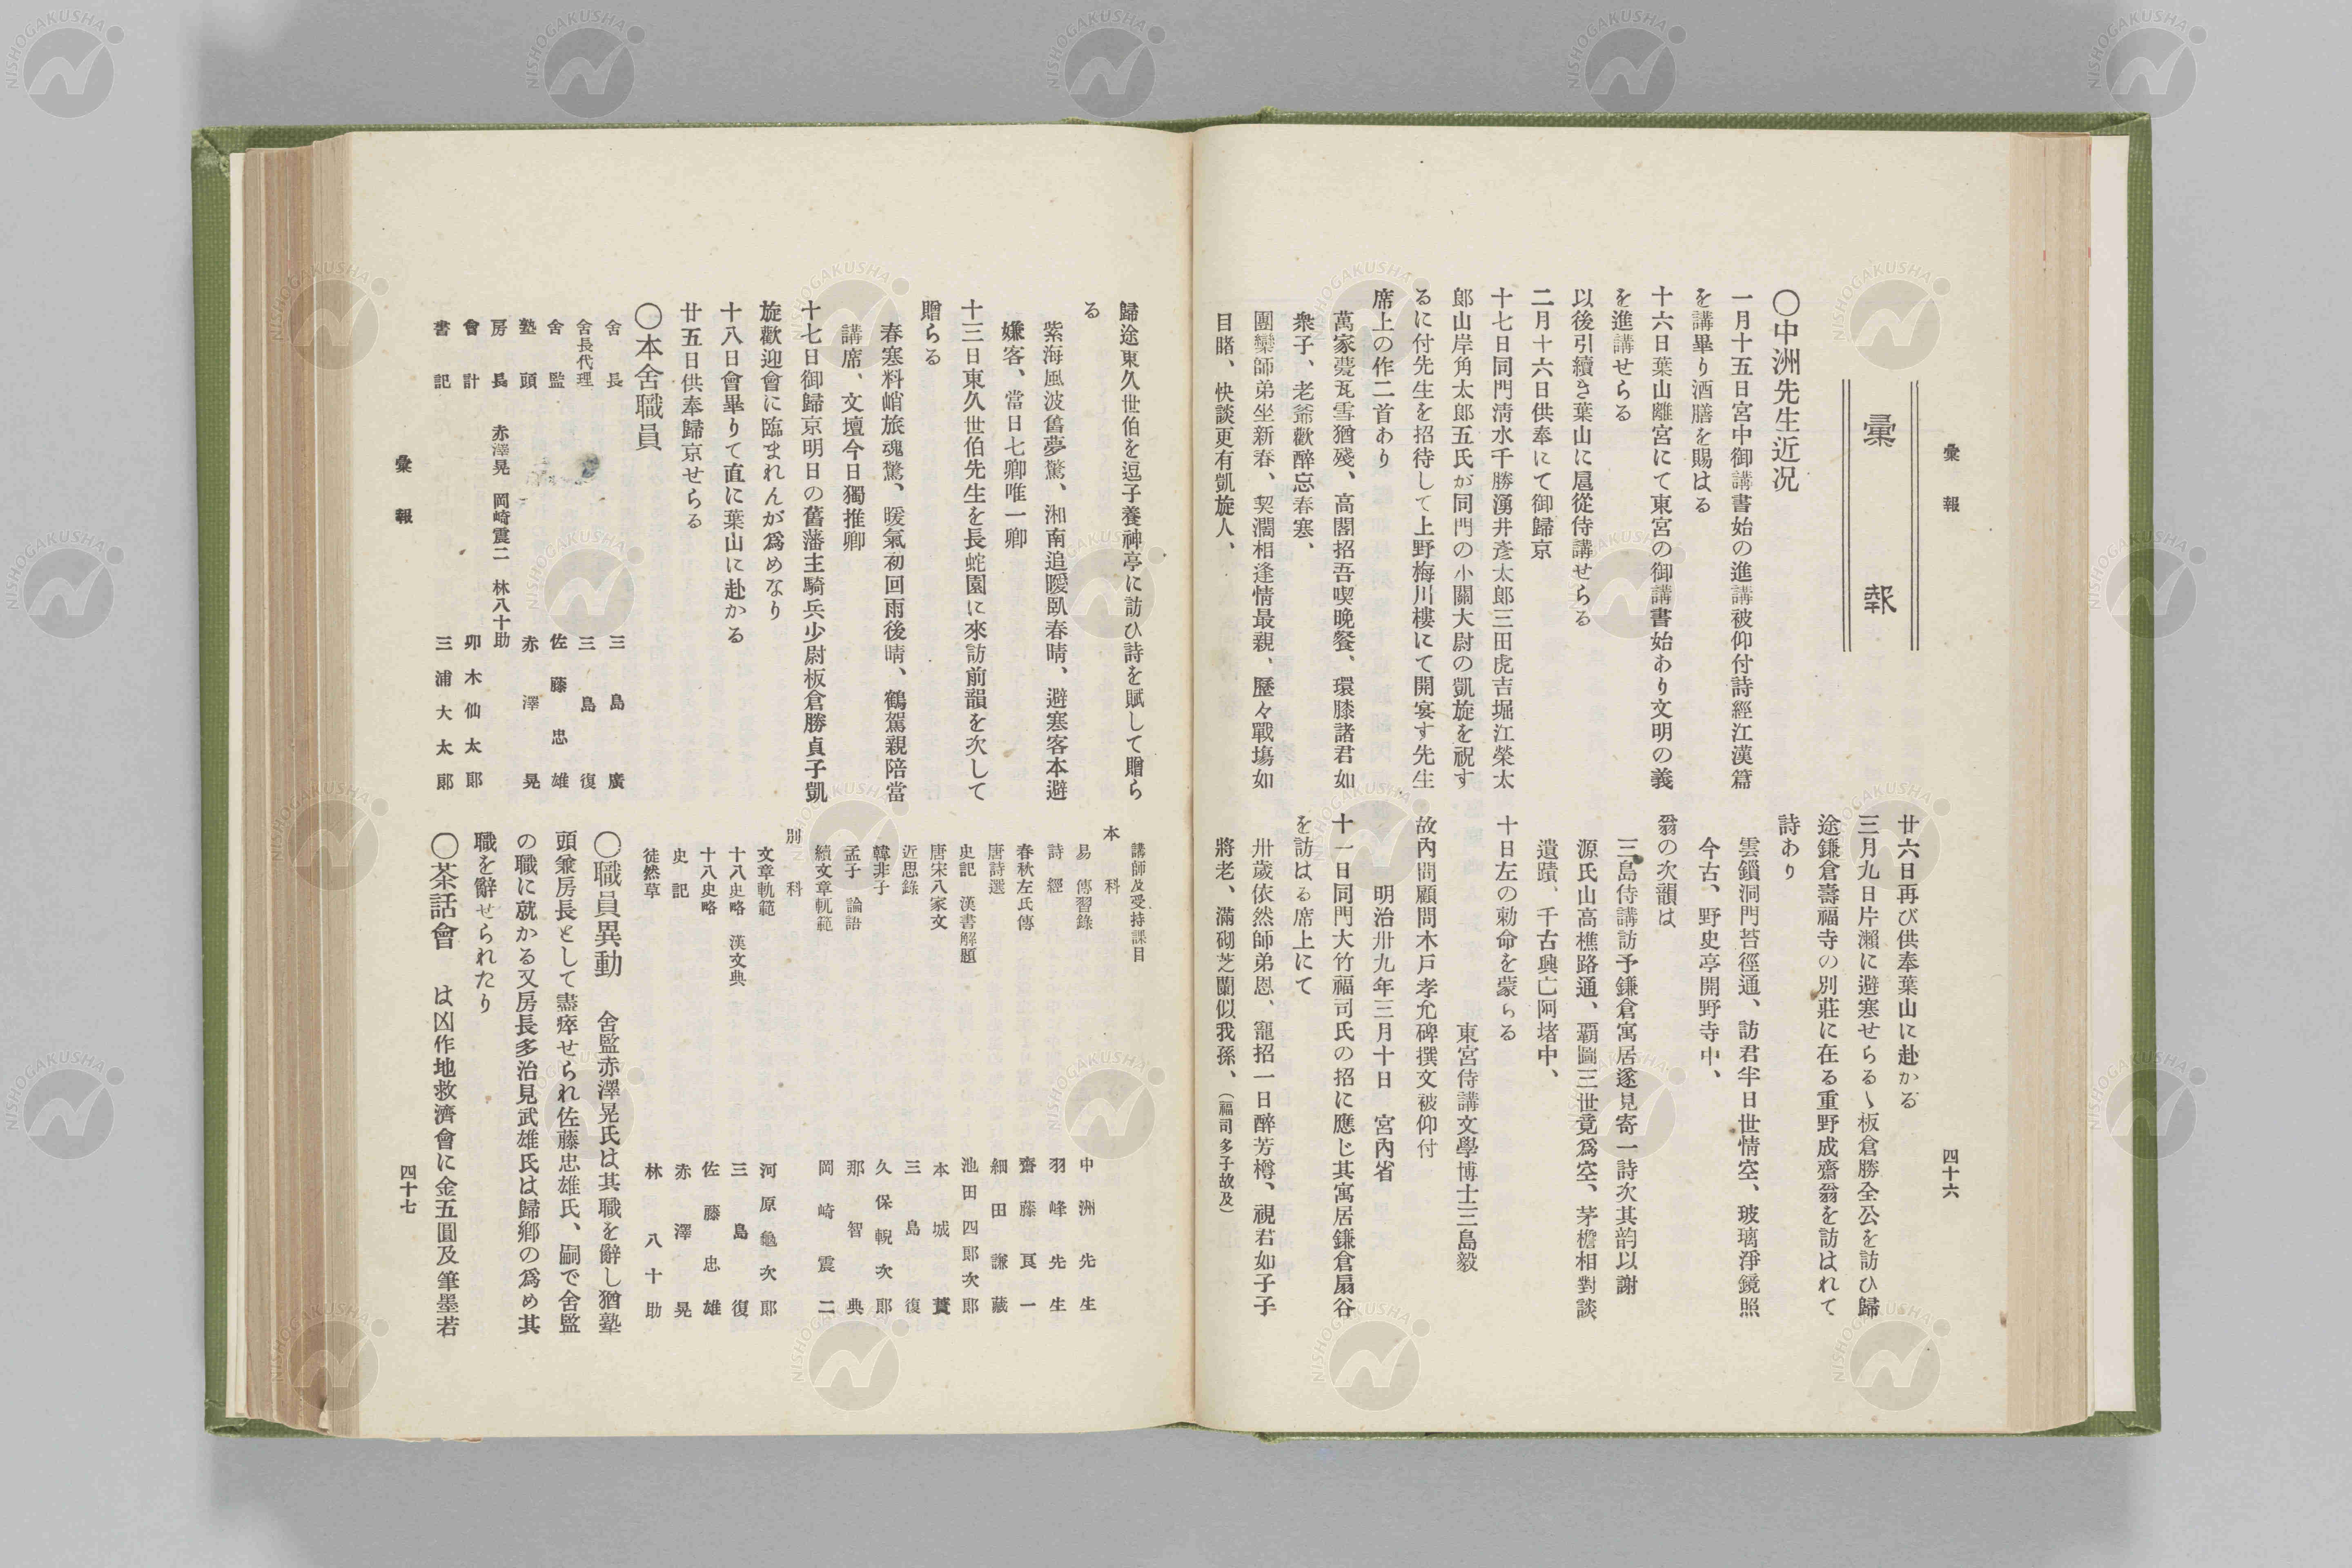 彙報
四十六
彙報
〇中洲先生近况
一月十五日宮中御講書始の進講被仰付詩經江漢篇
を講畢り酒膳を賜はる
十六日葉山離宮にて東宮の御講書始あり文明の義
を進講せらる
以後引續き葉山に扈從侍講せらる
二月十六日供奉にて御歸京
十七日同門淸水千勝湧井彥太郎三田虎吉堀江榮太
郎山岸角太郎五氏が同門の小關大尉の凱旋を祝す
るに付先生を招待して上野梅川樓にて開宴す先生
席上の作二首あり
萬家甍瓦雪猶殘、高閣招吾喫晚餐、環膝諸君如
衆子、老爺歡醉忘春寒、
團欒師弟坐新春、契濶相逢情最親、歷々戰塲如
目睹、快談更有凱旋人、
廿六日再び供奉葉山に赴かる
三月九日片瀨に避寒せらるゝ板倉勝全公を訪ひ歸
途鎌倉壽福寺の別莊に在る重野成齋翁を訪はれて
詩あり
雲鎖洞門苔徑通、訪君半日世情空、玻璃淨鏡照
今古、野史亭開野寺中、
翁の次韻は
三島侍講訪予鎌倉寓居遂見寄一詩次其韵以謝
源氏山高樵路通、覇圖三世竟爲空、茅檐相對談
遺蹟、千古興亡阿堵中、
十日左の勅命を蒙らる
東宮侍講文學博士三島毅
故內閣顧問木戶孝允碑撰文被仰付
明治卅九年三月十日　宮內省
十一日同門大竹福司氏の招に應じ其寓居鎌倉扇谷
を訪はる席上にて
卅歲依然師弟恩、寵招一日醉芳樽、視君如子子
將老、滿砌芝蘭似我孫、（福司多子故及）
歸途東久世伯を逗子養神亭に訪ひ詩を賦して贈ら
る
紫海風波舊夢驚、湘南追曖臥春晴、避寒客本避
嫌客、當日七卿唯一卿
十三日東久世伯先生を長蛇園に來訪前韻を次して
贈らる
春寒料峭旅魂驚、暖氣初回雨後晴、鶴駕親陪當
講席、文壇今日獨推卿
十七日御歸京明日の舊藩主騎兵少尉板倉勝貞子凱
旋歡迎會に臨まれんが爲めなり
十八日會畢りて直に葉山に赴かる
廿五日供奉歸京せらる
〇本舍職員
舍長　三島廣
舍長代理　三島復
舍監　佐藤忠雄
塾頭　赤澤晃
房長　赤澤晃　岡崎震二　林八十助
會計　卯木仙太郎
書記　三浦大太郎
講師及受持課目
本科
易　傳習錄　中洲先生
詩經　羽峰先生
春秋左氏傳　齋藤良一
唐詩選　細田謙藏
史記　漢書解題　池田四郎次郎
唐宋八家文　本城蕡
近思錄　三島復
韓非子　久保輗次郎
孟子　論語　那智典
續文章軌範　岡崎震二
別科
文章軌範　河原龜次郎
十八史略　漢文典　三島復
十八史略　佐藤忠雄
史記　赤澤晃
徒然草　林八十助
〇職員異動　舍監赤澤晃氏は其職を辭し猶塾
頭兼房長として盡瘁せられ佐藤忠雄氏、嗣で舍監
の職に就かる又房長多治見武雄氏は歸鄕の爲め其
職を辭せられたり
〇茶話會　は凶作地救濟會に金五圓及筆墨若
彙報
四十七